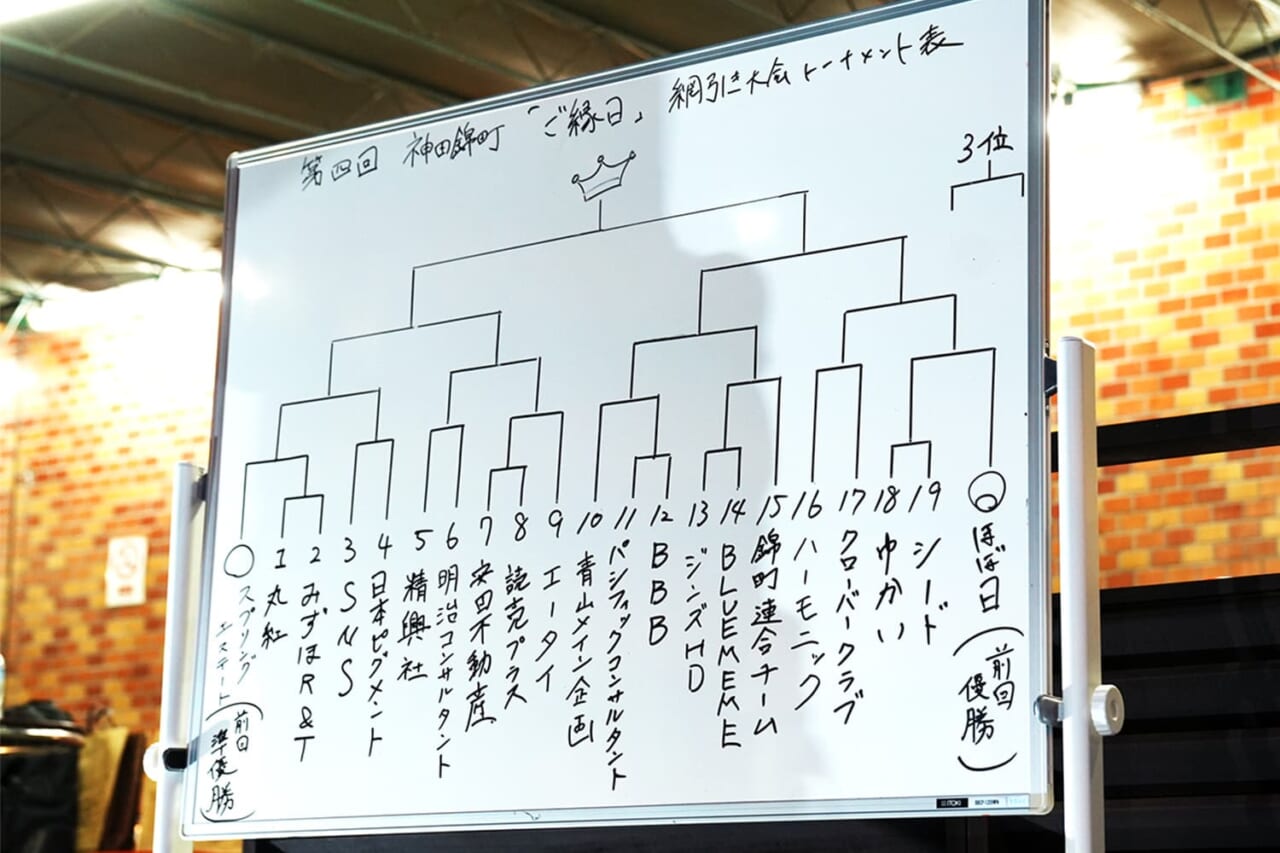 第四回 神田錦町「ご縁日」綱引き大会トーナメント表
3位
スプリングエステート(前回準優勝)
1 丸紅
2 みずほR&T
3 SNS
4 日本ピグメント
5 精興社
6 明治コンサルタント
7 安田不動産
8 読売プラス
9 エータイ
10 青山メイン企画
11 パシフィックコンサルタント
12 BBB
13 ジンズHD
14 BLUEMEME
15 錦町連合チーム
16 ハーモニック
17 クローバークラブ
18 ゆかい
19 シード
ほぼ日(前回優勝)
ITOKI